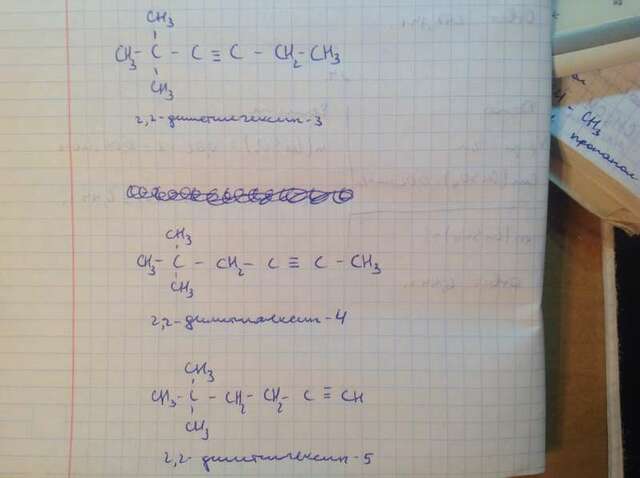 CH₃
CH₃ - C - C ≡ C - CH₂ - CH₃
CH₃
2,2-диметилгексин-3
CH₃
CH₃ - C - CH₂ - C ≡ C - CH₃
CH₃
2,2-диметилгексин-4
CH₃
CH₃ - C - CH₂ - CH₂ - C ≡ CH
CH₃
2,2-диметилгексин-5
- CH₃
пропанол